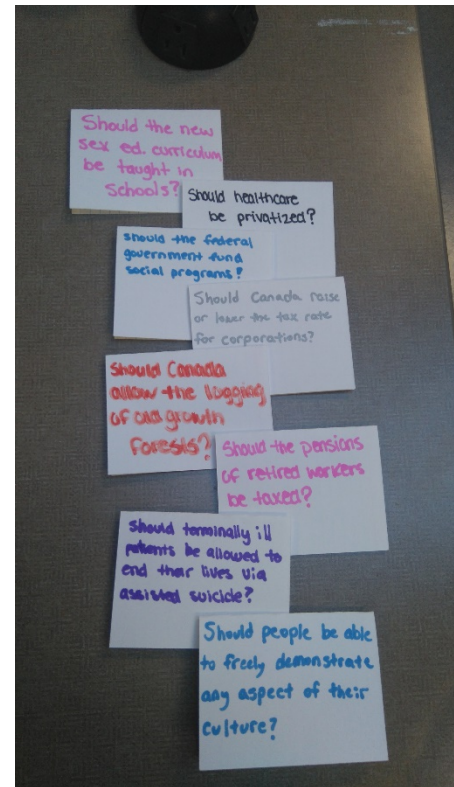 Should the new
sex ed. curriculum
be taught in
schools?
Should healthcare
be privatized?
should the federal
government fund
social programs?
Should Canada raise
or lower the tax rate
for corporations?
Should Canada
allow the logging
of old growth
forests?
Should the pensions
of retired workers
be taxed?
Should terminally ill
patients be allowed to
end their lives via
assisted suicide?
Should people be able
to freely demonstrate
any aspect of their
culture?